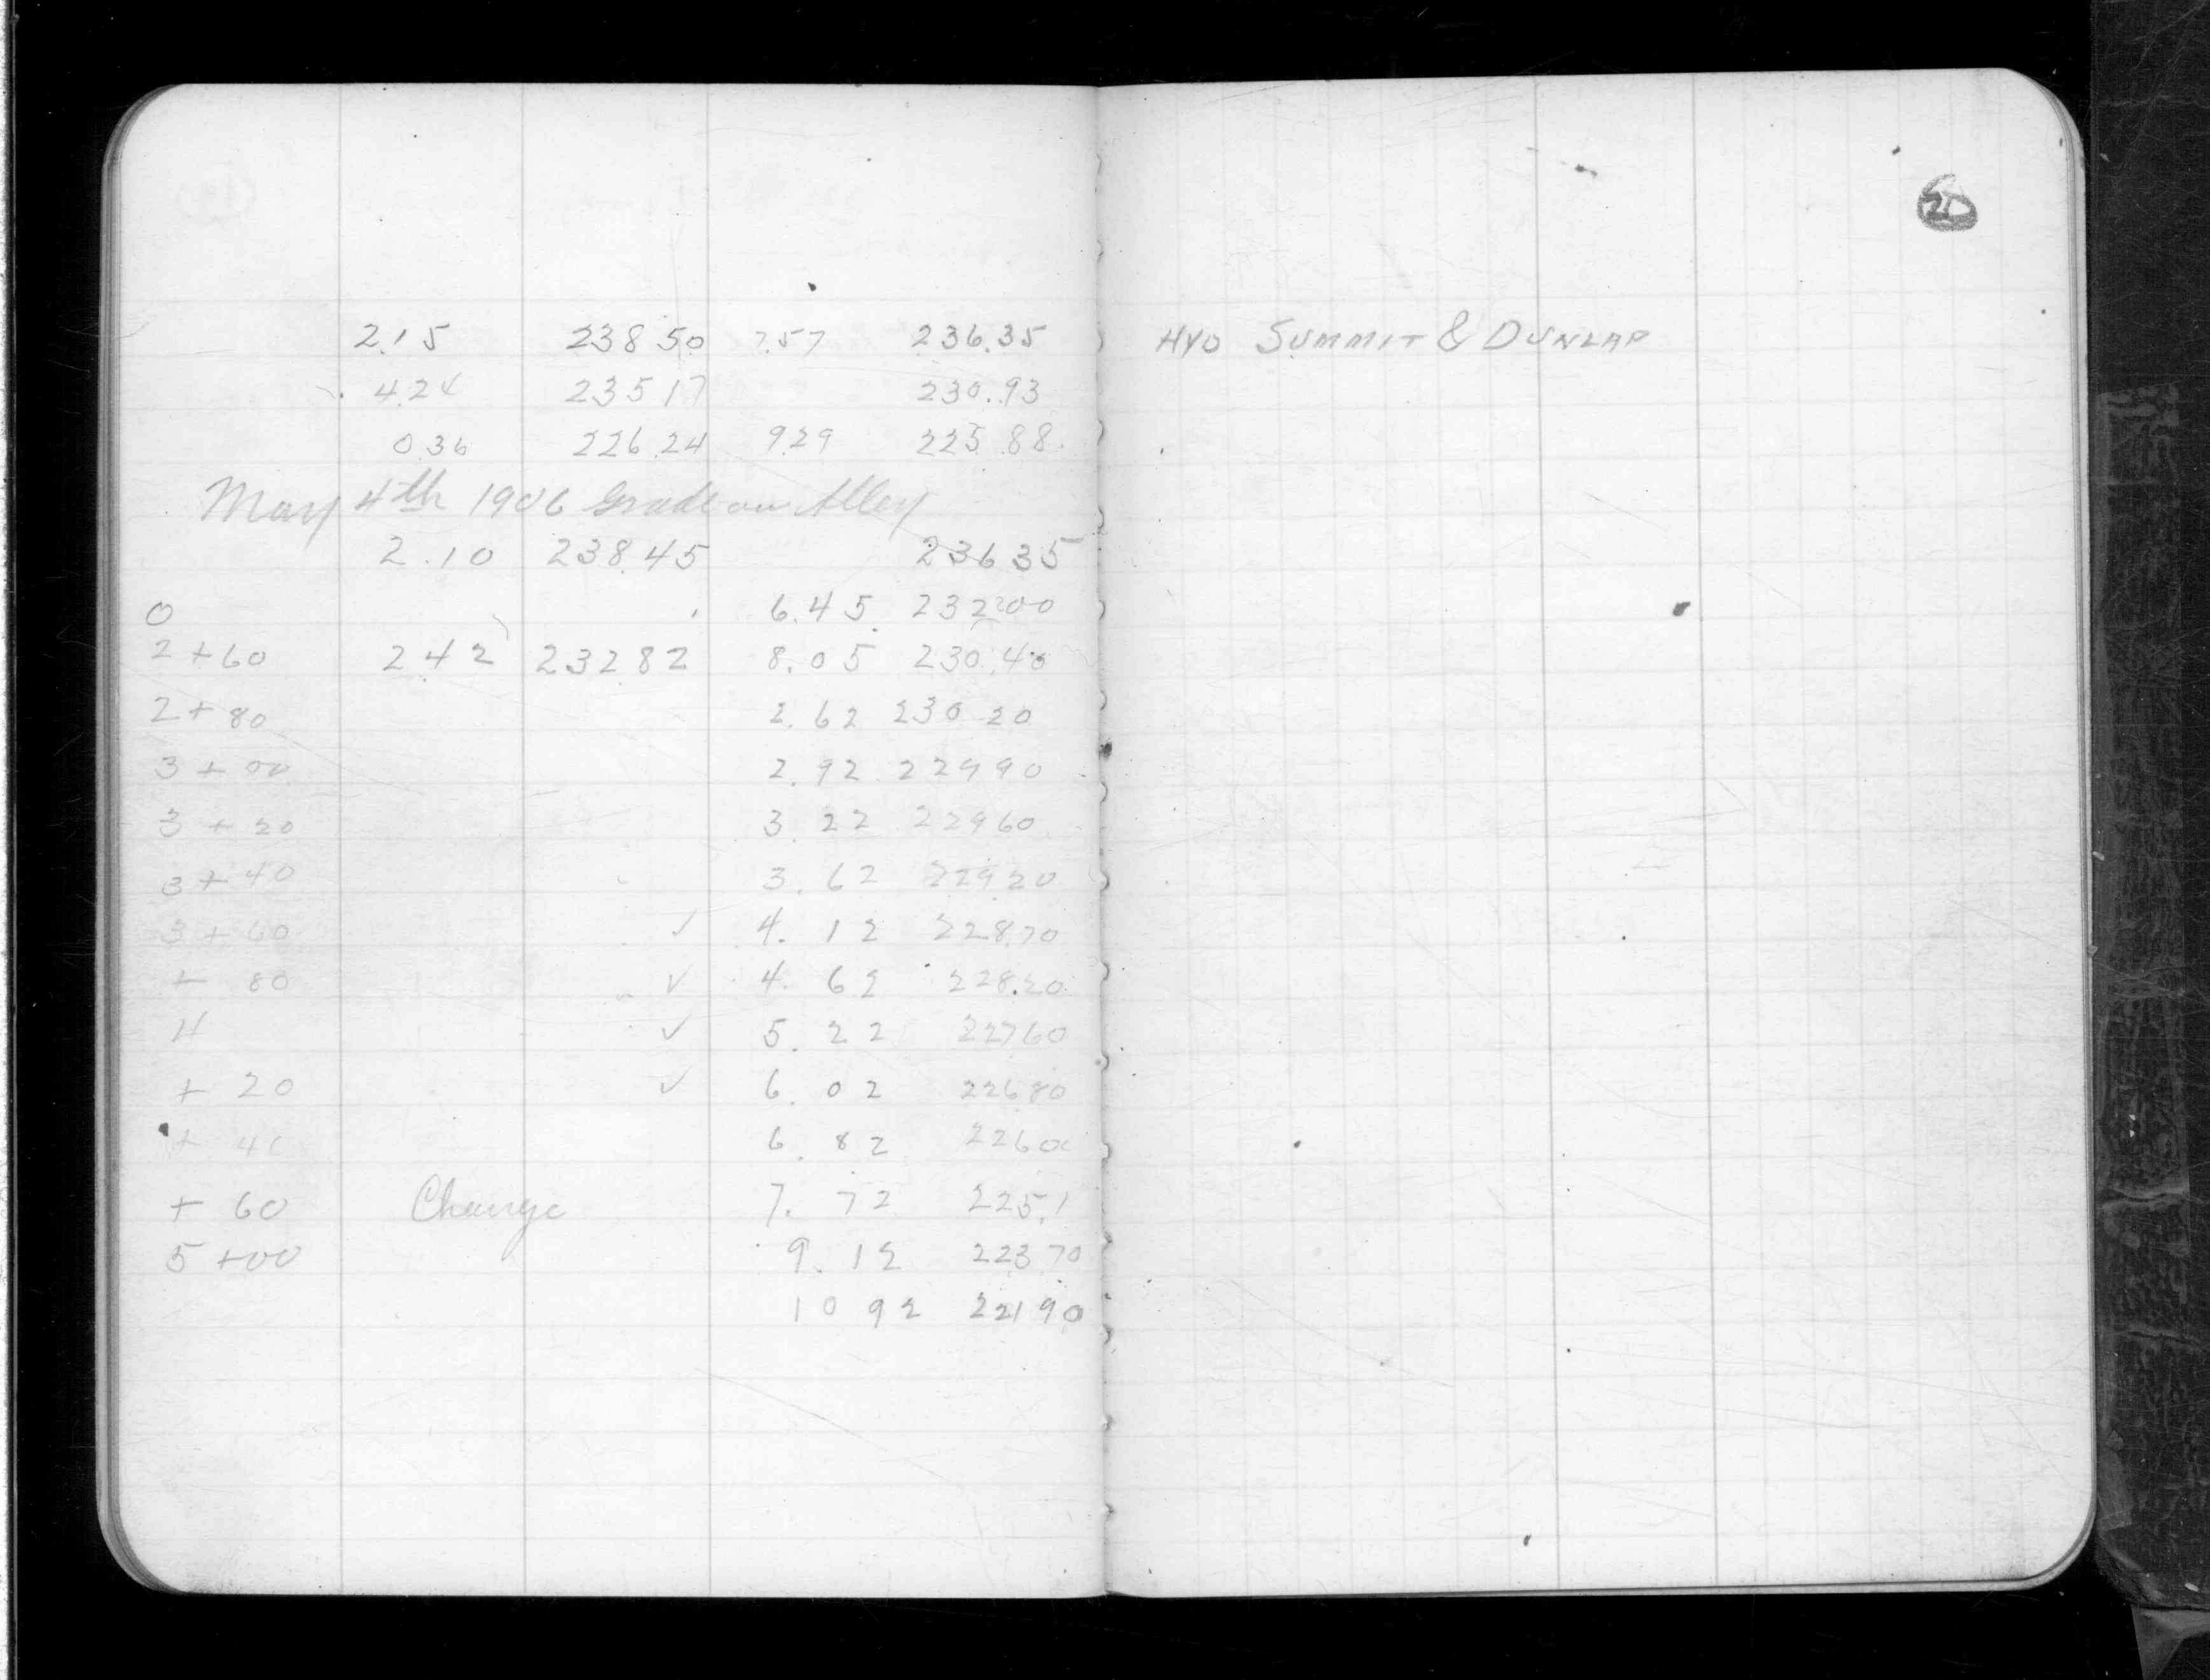 20
2.15 238.50 7.57 236.35 HYD SUMMIT & DUNLAP
4.24 235.17 230.93
0.36 226.24 9.29 225.88
May 4th 1906 Grade on Alley
2.10 238.45 236 35
0 6.45 232 00
2+60 2 42 232 82 8.05 230.40
2+80 2.62 230 20
3+00 2.92 229 90
3+20 3.22 229 60
3+40 3.62 229 20
3+60 ✓ 4.12 228.70
+ 80 ✓ 4.62 228.20
4 ✓ 5.22 227 60
+ 20 ✓ 6.02 226 80
+ 40 6.82 226 00
+ 60 Change 7.72 225.1
5+00 9.12 223 70
10 92 221 90